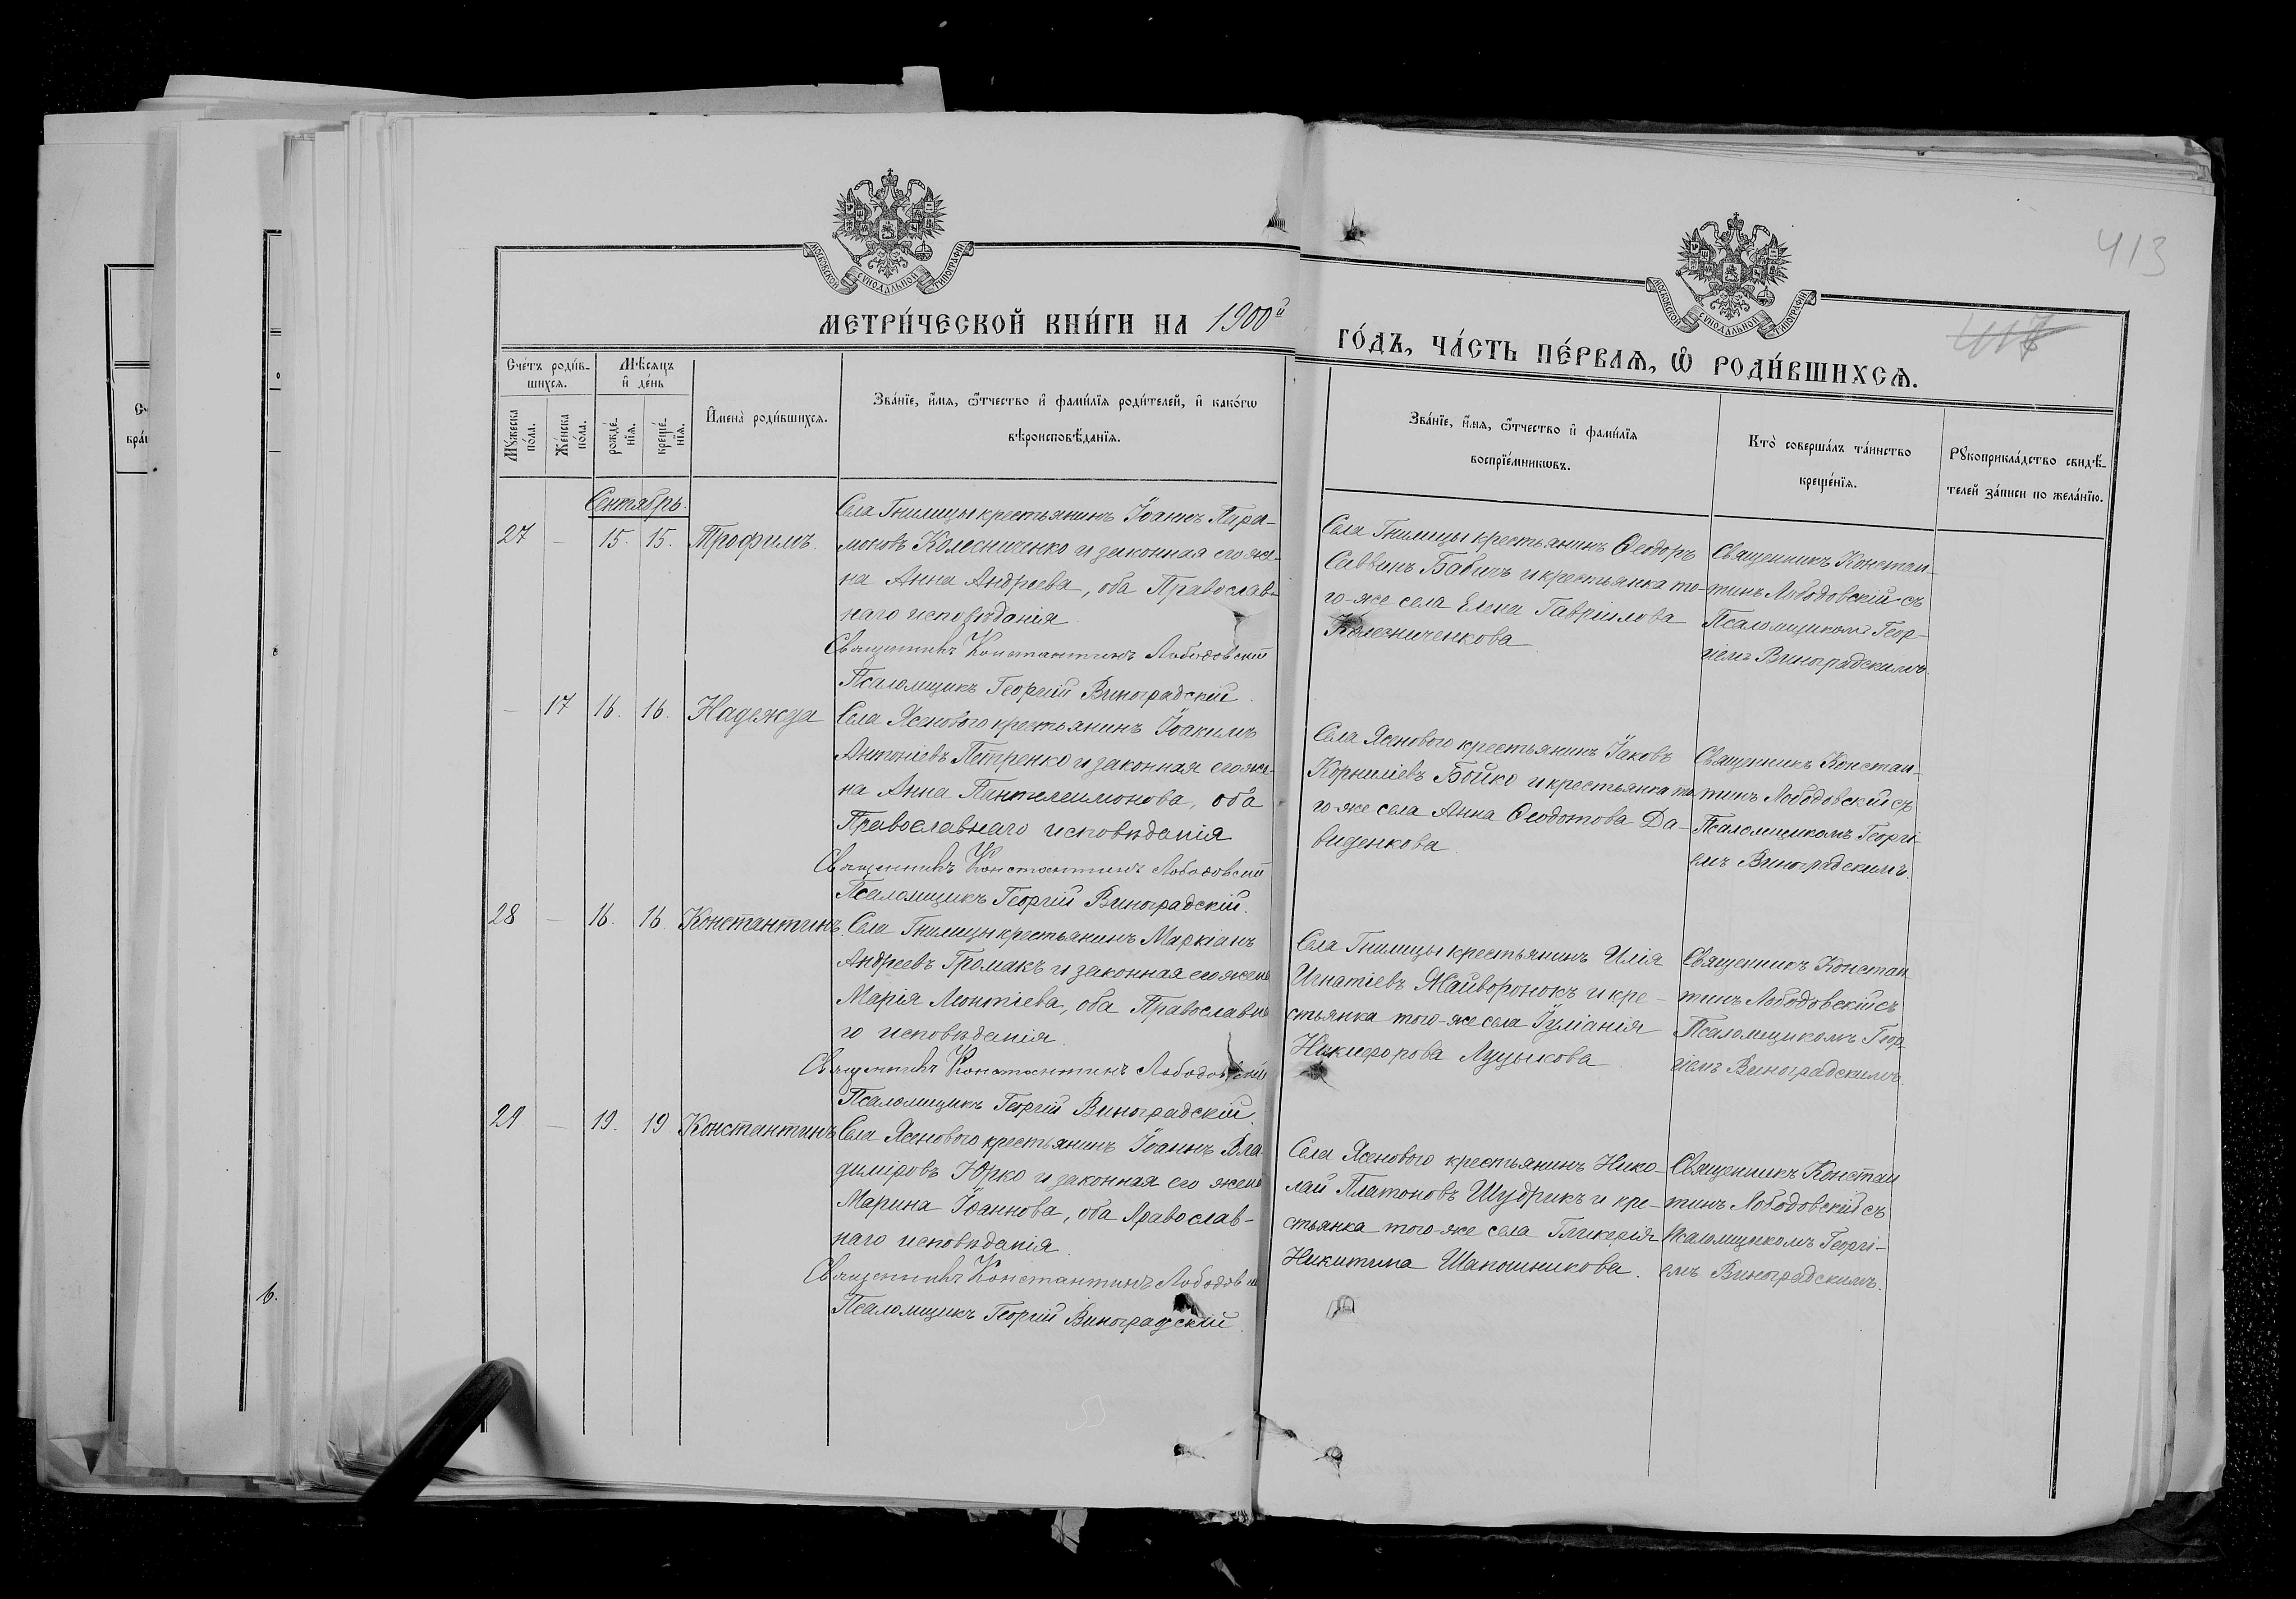 413
МОСКОВСКОЙ СУНОДАЛЬНОЙ ТИПОГРАФІИ
МОСКОВСКОЙ СУНОДАЛЬНОЙ ТИПОГРАФІИ
МЕТРИ́ЧЕСКОЙ КНИ́ГИ НА 1900й
ГО́ДЪ, ЧА́СТЬ ПЕ́РВАѦ, Ѿ РОДИ́ВШИХСѦ.
Сче́тъ роди́в-
шихся.
Мѣ́сяцъ
и҆ де́нь
Мꙋ́жеска
по́ла.
Же́нска
по́ла.
рожде́-
нїя.
креще́-
нїя.
И҆мена̀ роди́вшихся.
Зва́нїе, и҆́мя, ѻ҆́тчество и҆ фами́лїя роди́телей, и҆ како́гѡ
вѣроисповѣ́данїя.
Зва́нїе, и҆́мя, ѻ҆́тчество и҆ фами́лїя
воспрїе́мникѡвъ.
Кто̀ соверша́лъ та́инство
креще́нїя.
Рꙋкоприкла́дство свидѣ́-
телей за́писи по жела́нїю.
Сентябрь.
27 - 15. 15. Трофимъ.
Села Гнилицы крестьянинъ Іоаннъ Пара-
моновъ Колесниченко и законная его же-
на Анна Андреева, оба Православ-
наго исповѣданія.
Священникъ Константинъ Лободовскій
Псаломщикъ Георгій Виноградскій.
Села Гнилицы крестьянинъ Ѳеодоръ
Саввинъ Бабичъ и крестьянка то-
го-же села Елена Гавріилова
Колезниченкова
Священникъ Констан-
тинъ Лободовскій съ
Псаломщикомъ Геор-
гіемъ Виноградскимъ.
- 17 16. 16. Надежда
Села Ясенового крестьянинъ Іоакимъ
Антоніевъ Петренко и законная его же-
на Анна Пантелеимонова, оба
Православнаго исповѣданія
Священникъ Константинъ Лободовскій
Псаломщикъ Георгій Виноградскій.
Села Ясенового крестьянинъ Іаковъ
Корниліевъ Бойко и крестьянка то-
го-же села Анна Ѳеодотова Да-
виденкова.
Священникъ Констан-
тинъ Лободовскій съ
Псаломщикомъ Георгі-
емъ Виноградскимъ.
28 - 16. 16. Константинъ.
Села Гнилицы крестьянинъ Маркіанъ
Андреевъ Громакъ и законная его жена
Марія Леонтіева, оба Православна
го исповѣданія.
Священникъ Константинъ Лободовскій
Псаломщикъ Георгій Виноградскій.
Села Гнилицы крестьянинъ Илія
Игнатіевъ Жайворонокъ и кре-
стьянка того-же села Іуліанія
Никифорова Луцыкова
Священникъ Констан
тинъ Лободовскій съ
Псаломщикомъ Геор-
гіемъ Виноградскимъ.
29 - 19. 19. Константинъ
Села Ясенового крестьянинъ Іоаннъ Вла-
диміровъ Юрко и законная его жена
Марина Іоаннова, оба Православ-
наго исповѣданія.
Священникъ Константинъ Лободовскій
Псаломщикъ Георгій Виноградскій.
Села Ясенового крестьянинъ Нико-
лай Платоновъ Шудрикъ и кре-
стьянка того-же села Гликерія
Никитина Шапошникова.
Священникъ Констан
тинъ Лободовскій съ
Псаломщикомъ Георгі-
емъ Виноградскимъ.